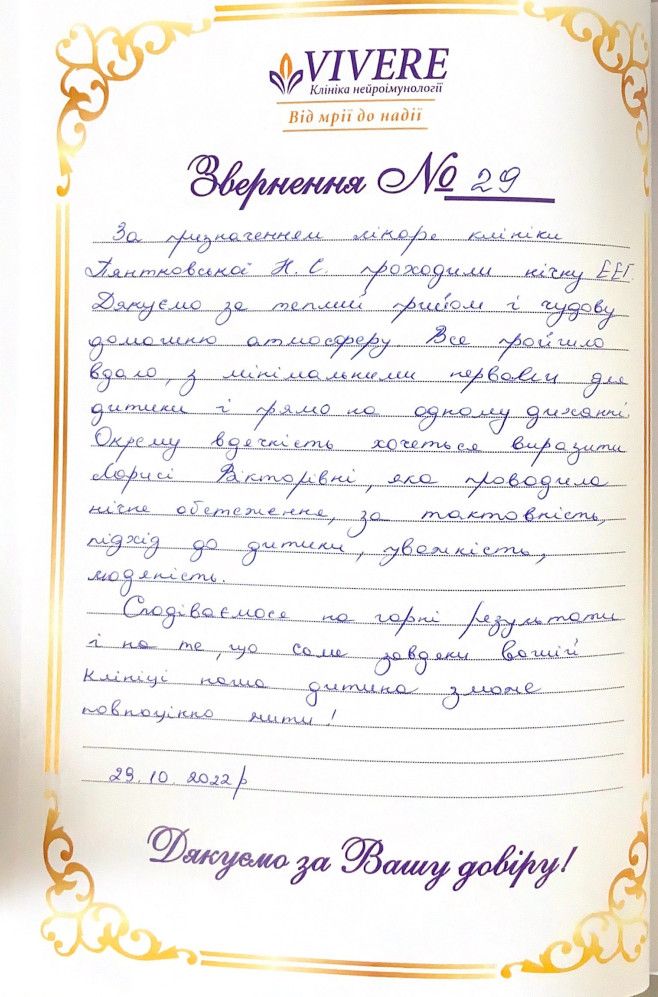 VIVERE
Клініка нейроімунології
Від мрії до надії
Звернення № 29
За призначенням лікаря клініки
Пянтковської Н. С. проходили нічну ЕЕГ.
Дякуємо за теплий прийом і чудову
домашню атмосферу Все пройшло
вдало, з мінімальними нервами для
дитини і прямо на одному диханні.
Окрему вдячність хочеться виразити
Ларисі Вікторівні, яка проводила
нічне обстеження, за тактовність,
підхід до дитини, уважність,
людяність.
Сподіваємося на гарні результати
і на те, що саме завдяки вашій
клініці наша дитина зможе
повноцінно жити!
29.10.2022р
Дякуємо за Вашу довіру!